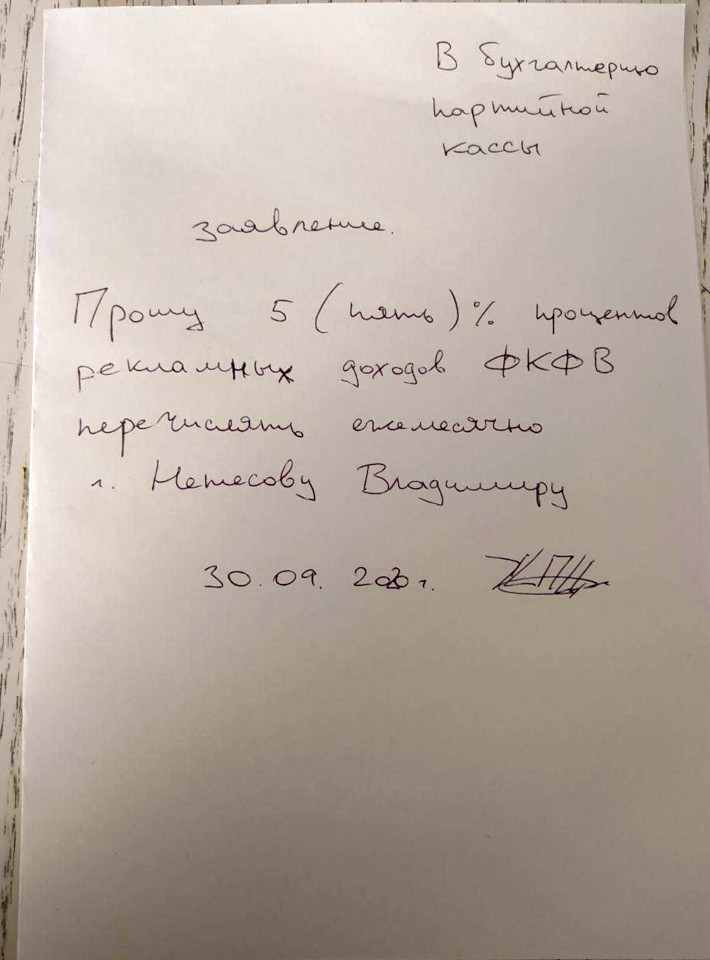 В бухгалтерию
партийной
кассы
заявление.
Прошу 5 (пять)% процентов
рекламных доходов ФКФВ
перечислять ежемесячно
г. Нетесову Владимиру
30.09. 2020г.